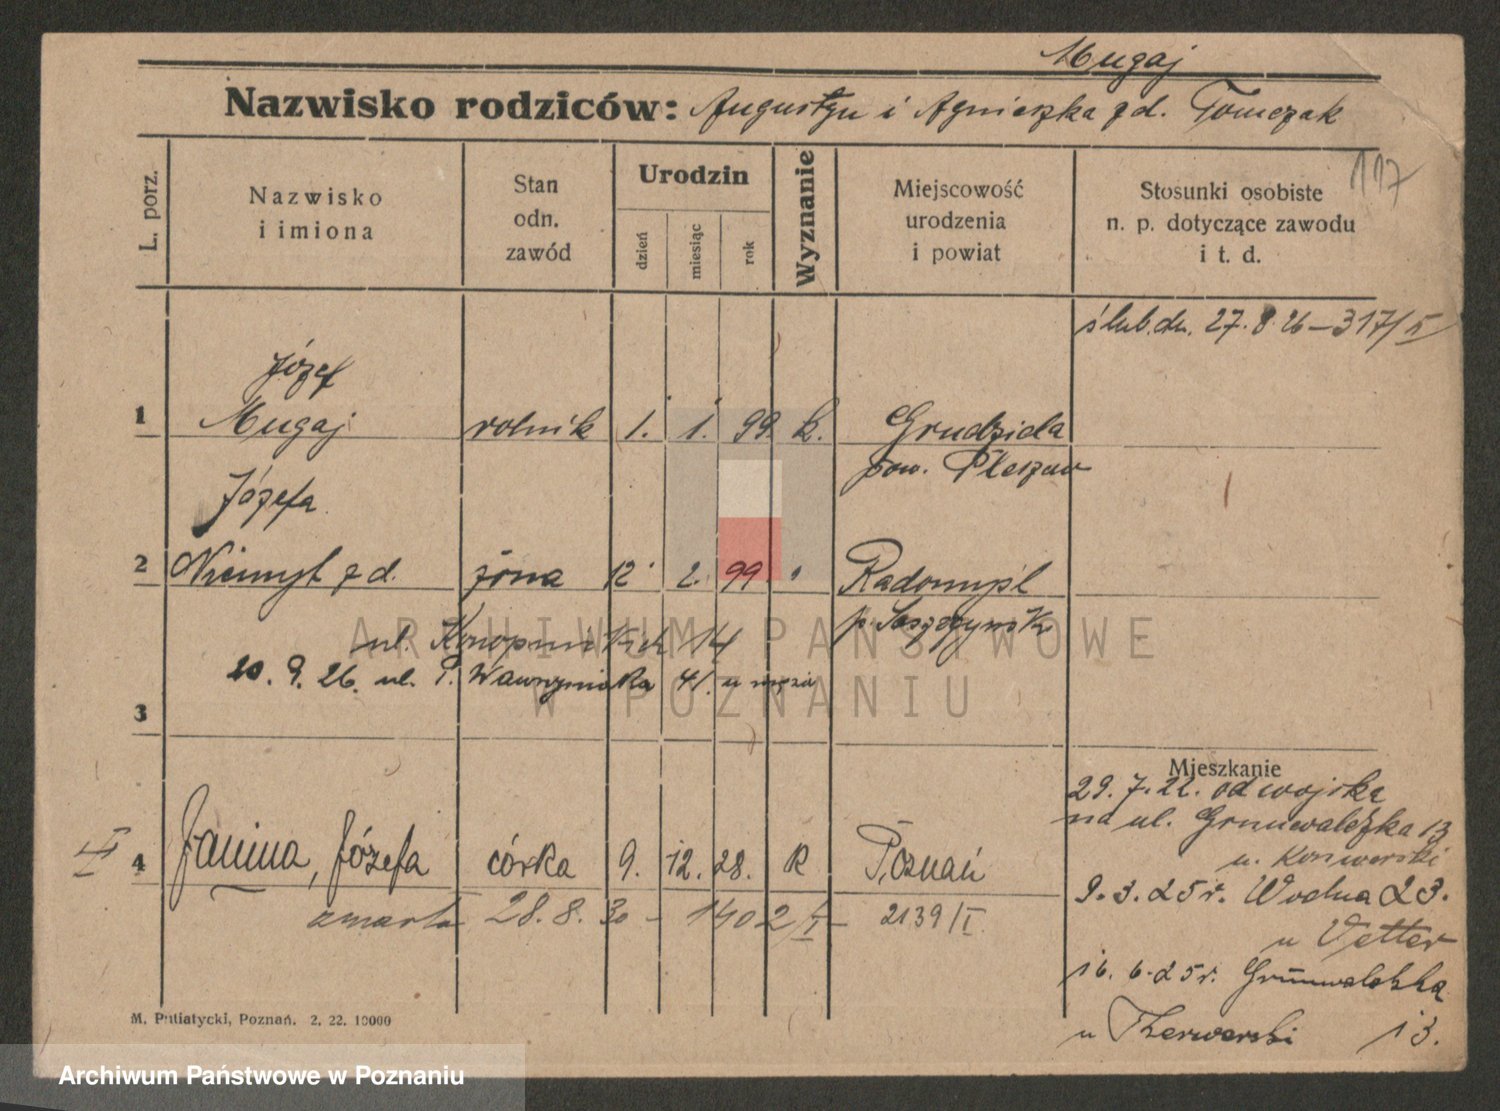 Mugaj
Nazwisko rodziców: Augustyn i Agnieszka z d. Tomczak
117
L. porz.
Nazwisko
i imiona
Stan
odn.
zawód
Urodzin
dzień
miesiąc
rok
Wyznanie
Miejscowość
urodzenia
i powiat
Stosunki osobiste
n. p. dotyczące zawodu
i t. d.
ślub. dn. 27. 8. 26 – 317/II
Józef
1 Mugaj rolnik 1. 1. 99. k. Grudzida
pow. Pleszew
Józefa
2 Niemyt z d. żona 12 2. 99 Radomyśl
ul. 14
20. 9. 26. ul. P. Wawrzyniaka 41. u męża
3
Mieszkanie
29. 7. 22. od wojska
na ul. Grunwaldzka 13
u.
4 Janina, Józefa córka 9. 12. 28. R Poznań
9. 3. 25 r. Wodna 23.
zmarła 28. 8. 30 – 1402/I – 2139/I
u Vetter
16. 6. 25 r. Grunwaldzka
u 13.
M. Putiatycki, Poznań. 2. 22. 10000
ARCHIWUM PAŃSTWOWE
W POZNANIU
Archiwum Państwowe w Poznaniu